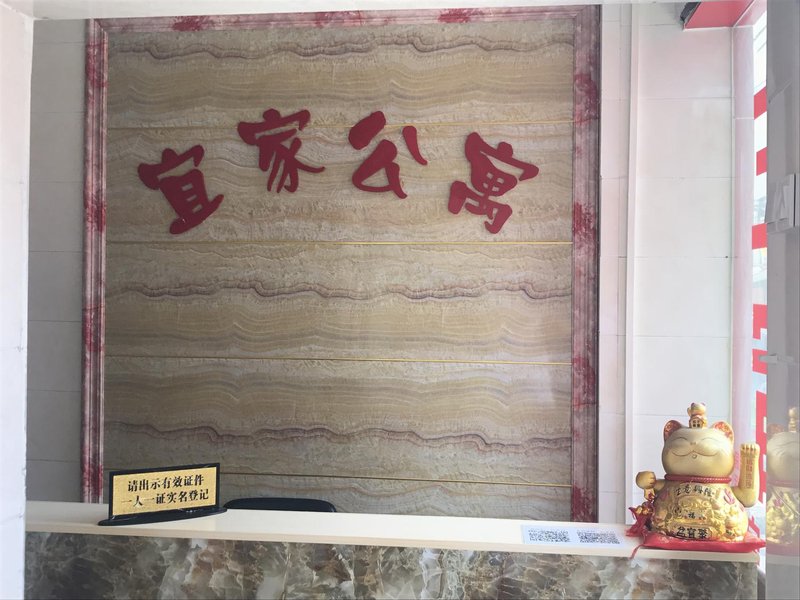 宜家公寓
请出示有效证件
一人一证实名登记